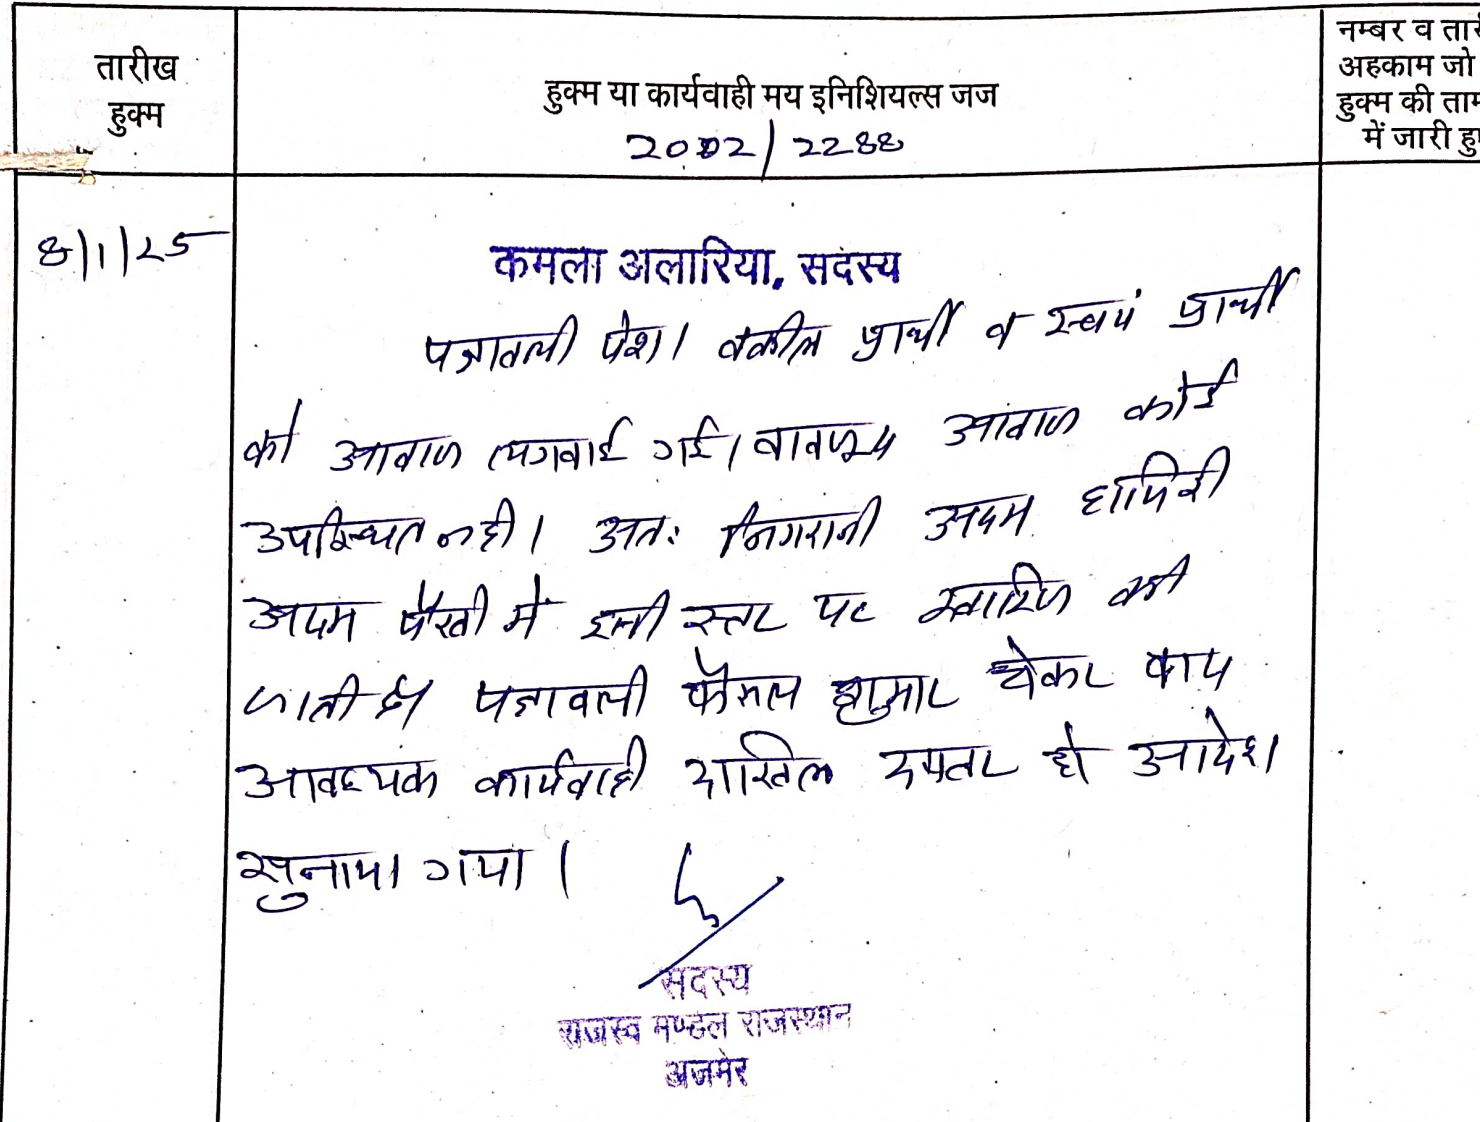 तारीख
हुक्म
हुक्म या कार्यवाही मय इनिशियल्स जज
नम्बर व तारी
अहकाम जो
हुक्म की ताम
में जारी हु
2002/2288
8/1/25
कमला अलारिया, सदस्य
पत्रावली पेश। वकील प्रार्थी व स्वयं प्रार्थी
को आवाज लगवाई गई। बावजूद आवाज कोई
उपस्थित नही। अतः निगरानी अदम हाजिरी
अदम पैरवी में इसी स्तर पर खारिज की
जाती है पत्रावली फैसल शुमार होकर बाद
आवश्यक कार्यवाही दाखिल दफ्तर हो आदेश
सुनाया गया।
सदस्य
राजस्व मण्डल राजस्थान
अजमेर